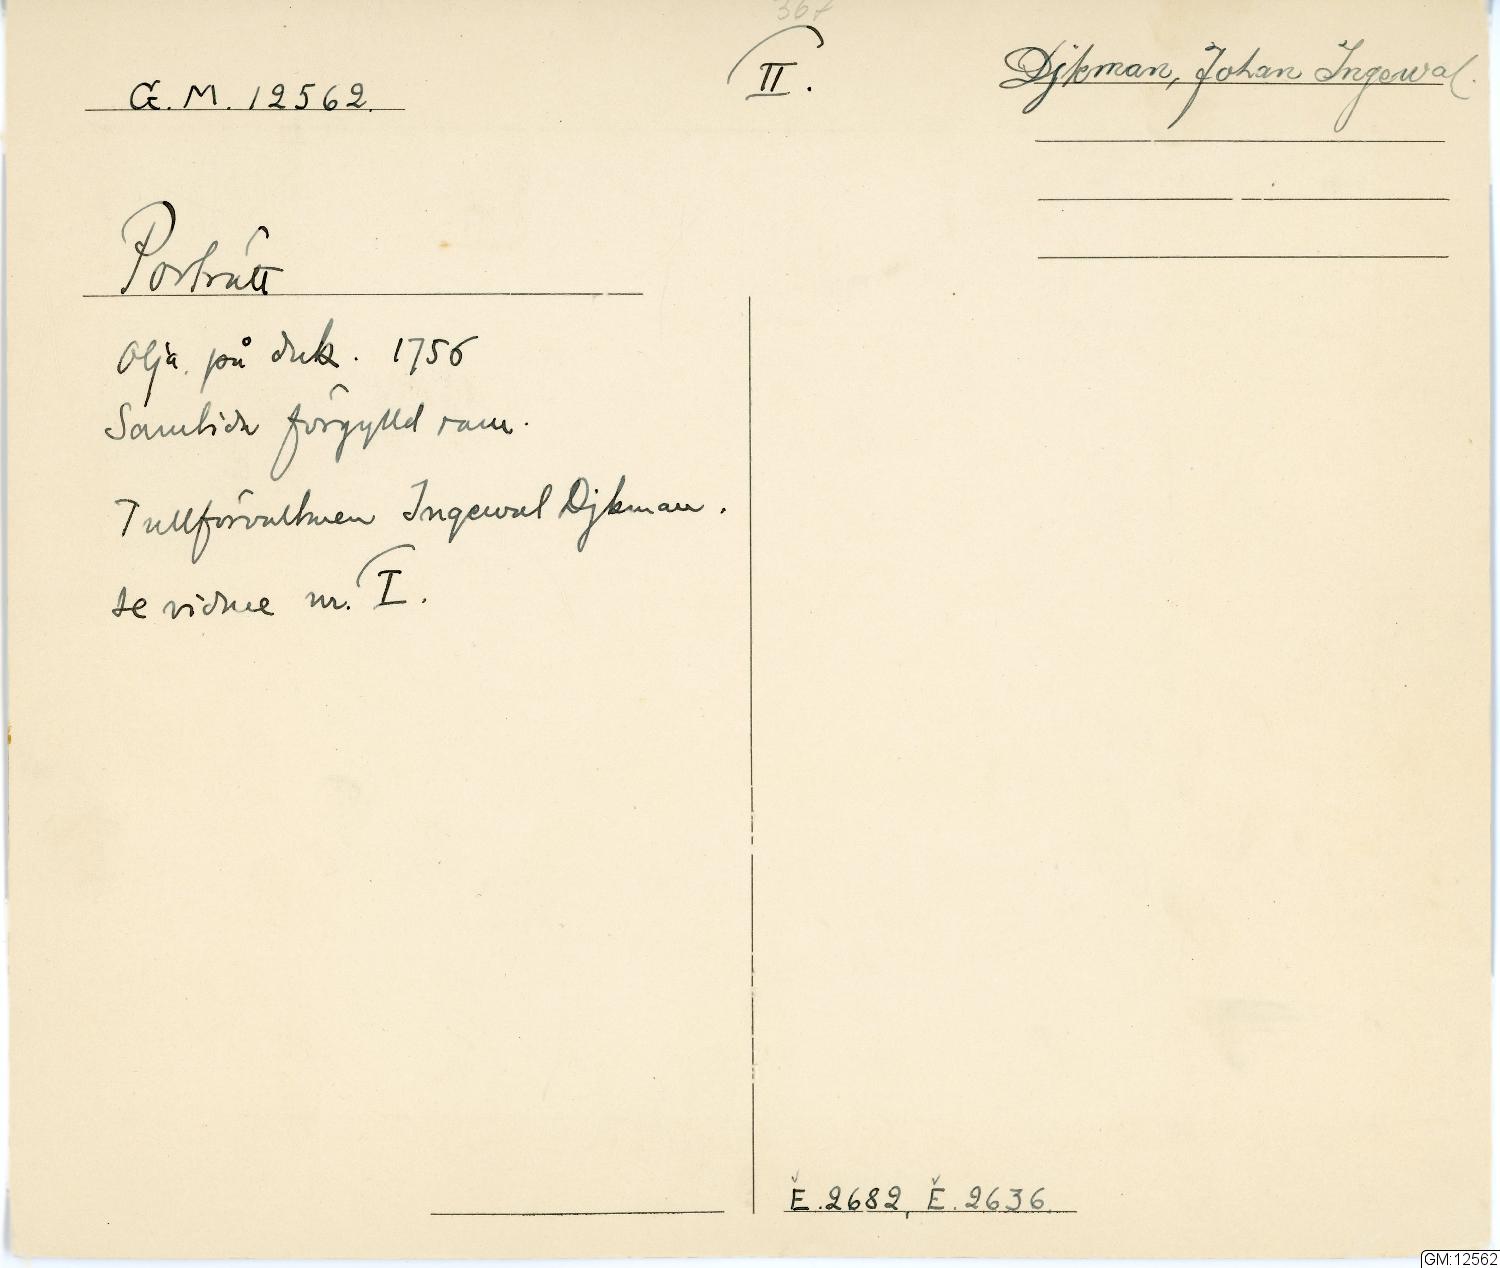 367
G.M. 12562.
II.
Djkman, Johan Ingewal.
Porträtt
Olja på duk. 1756
Samtida förgylld ram.
Tullförvaltaren Ingewal Djkman.
se vidare nr. I.
E.2682, E.2636.
GM:12562